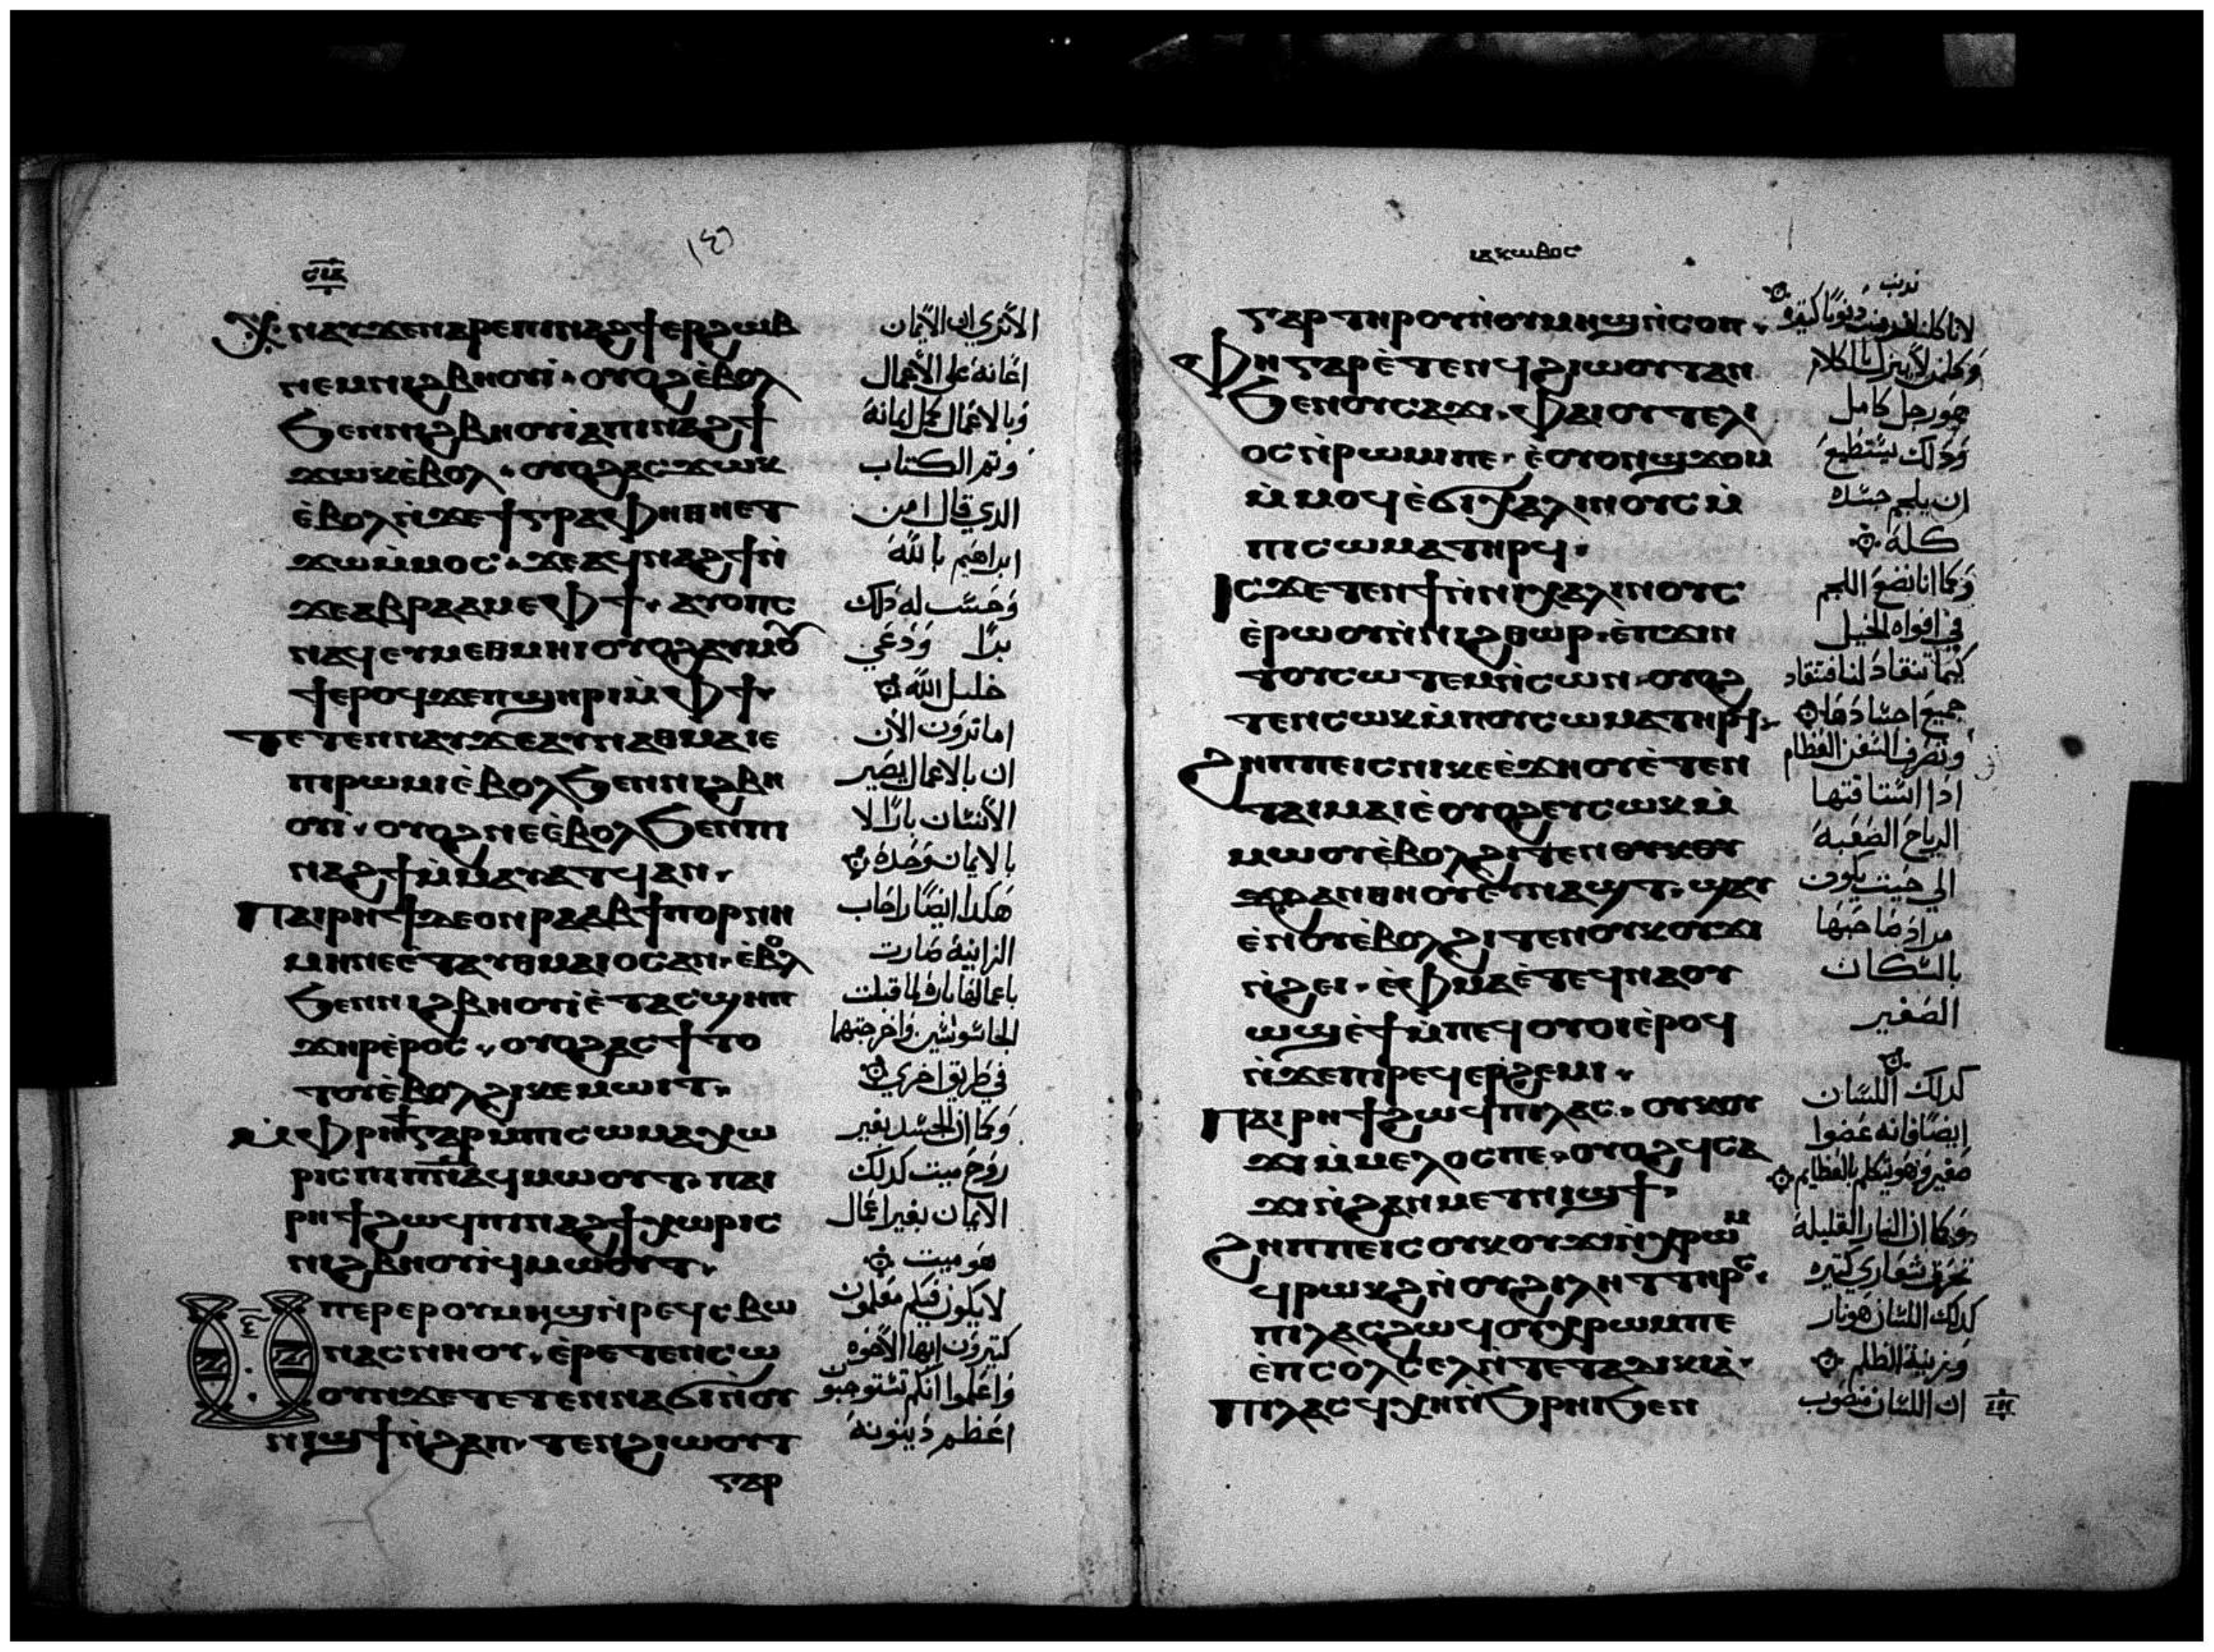 ⲥⲓⲁ
ⲭⲛⲁⲩϫⲉⲛⲁⲣⲉⲡⲓⲛⲁϩϯⲉⲣϩⲱⲃ
ⲛⲉⲙⲛⲓϩⲃⲏⲟⲩⲓ̀· ⲟⲩⲟϩⲉ̀ⲃⲟⲗ
ϧⲉⲛⲛⲓϩⲃⲏⲟⲩⲓ̀ⲁⲡⲓⲛⲁϩϯ
ϫⲱⲕⲉ̀ⲃⲟⲗ· ⲟⲩⲟϩⲁⲥϫⲱⲕ
ⲉ̀ⲃⲟⲗⲛ̀ϫⲉϯⲅⲣⲁⲫⲏⲑⲏⲉⲧ
ϫⲱⲙ̀ⲙⲟⲥ· ϫⲉⲁϥⲛⲁϩϯⲛ̀
ϫⲉⲁⲃⲣⲁⲁⲙⲉⲫϯ· ⲁⲩⲟⲡⲥ
ⲛⲁϥⲉⲩⲙⲉⲑⲙⲏⲓⲟⲩⲟϩⲁⲩⲙⲟ
ϯⲉⲣⲟϥϫⲉⲡϣⲏⲣⲓⲙ̀ⲫϯ·
ⲧⲉⲧⲉⲛⲛⲁⲩϫⲉⲁⲩⲛⲁⲑⲙⲁⲓⲉ
ⲡⲓⲣⲱⲙⲓⲉ̀ⲃⲟⲗϧⲉⲛⲛⲓϩⲃⲏ
ⲟⲩⲓ̀· ⲟⲩⲟϩⲛⲉⲉ̀ⲃⲟⲗϧⲉⲛⲡⲓ
ⲛⲁϩϯⲙ̀ⲙⲁⲩⲁⲧϥⲁⲛ·
ⲡⲁⲓⲣⲏϯⲇⲉⲟⲛⲣⲁⲁⲃϯⲡⲟⲣⲛⲏ
ⲙⲏⲡⲉⲉ̀ⲧⲁⲩⲑⲙⲁⲓⲟⲥⲁⲛ· ⲉ̀ⲃⲟⲗ
ϧⲉⲛⲛⲓϩⲃⲏⲟⲩⲓ̀ⲉ̀ⲧⲁⲥϣⲉⲡ
ϫⲏⲣⲉ̀ⲣⲟⲥ· ⲟⲩⲟϩⲁⲥϯⲧⲟ
ⲧⲟⲩⲉ̀ⲃⲟⲗϩⲓⲕⲉⲙⲱⲓⲧ·
ⲙ̀ⲫⲣⲏϯⲅⲁⲣⲙ̀ⲡⲓⲥⲱⲙⲁⲭⲱ
ⲣⲓⲥⲡⲓⲡ̅ⲛ̅ⲁ̅ϥⲙⲱⲟⲩⲧ· ⲡⲁⲓ
ⲣⲏϯϩⲱϥⲡⲓⲛⲁϩϯⲭⲱⲣⲓⲥ
ⲛⲓϩⲃⲏⲟⲩⲓ̀ϥⲙⲱⲟⲩⲧ·
ⲙⲡⲉⲣⲉⲣⲟⲩⲙⲏϣⲛ̀ⲣⲉϥⲥⲃⲱ
ⲛⲁⲥⲛⲏⲟⲩ· ⲉ̀ⲣⲉⲧⲉⲛⲥⲱ
ⲟⲩⲛϫⲉⲧⲉⲧⲉⲛⲛⲁϭⲓⲛ̀ⲟⲩ
ⲛⲓϣϯⲛ̀ϩⲁⲡ· ⲧⲉⲛϩⲓⲱⲟⲩⲧ
ⲅⲁⲣ
الا ترى ان الايمان
اعانة على الاعمال
وبالاعمال كمل ايمانه
وتم الكتاب
الذي قال امن
ابراهيم بالله
وحسب له ذلك
برا ودعي
خليل الله
اما ترون الان
ان بالاعمال يصير
الانسان بارا لا
بالايمان وحده
هكذا ايضا راحاب
الزانية صارت
باعمالها باره لما قبلت
الجاسوسين واخرجتهما
في طريق اخري
وكما ان الجسد بغير
روح ميت كذلك
الايمان بغير اعمال
هو ميت
لا يكون فيكم معلمون
كثيرون ايها الاخوه
واعلموا انكم تستوجبون
اعظم دينونة
ⲓⲁⲕⲱⲃⲟⲥ
ⲅⲁⲣⲧⲏⲣⲟⲩⲛ̀ⲟⲩⲙⲏϣⲛ̀ⲥⲟⲡ·
ⲫⲏⲅⲁⲣⲉ̀ⲧⲉⲛϥϩⲓⲱⲟⲩⲧⲁⲛ
ϧⲉⲛⲟⲩⲥⲁϫⲓ· ⲫⲁⲓⲟⲩⲧⲉⲗⲓ
ⲟⲥⲛ̀ⲣⲱⲙⲓⲡⲉ· ⲉ̀ⲟⲩⲟⲛϣϫⲟⲙ
ⲙ̀ⲙⲟϥⲉ̀ϭⲓⲭⲁⲗⲓⲛⲟⲩⲥⲙ̀
ⲡⲓⲥⲱⲙⲁⲧⲏⲣϥ·
ⲓⲥϫⲉⲧⲉⲛϯⲛ̀ⲛⲓⲭⲁⲗⲓⲛⲟⲩⲥ
ⲉ̀ⲣⲱⲟⲩⲛ̀ⲛⲓϩⲑⲱⲣ· ⲉ̀ⲡϫⲓⲛ
ⲧⲟⲩⲥⲱⲧⲉⲙⲛ̀ⲥⲱⲛ· ⲟⲩⲟϩ
ⲧⲉⲛⲥⲱⲕⲙ̀ⲡⲟⲩⲥⲱⲙⲁⲧⲏⲣϥ·
ϩⲏⲡⲡⲉⲓⲥⲛⲓⲕⲉⲉ̀ϫⲏⲟⲩⲉ̀ⲧⲉⲛ
ⲧⲁⲓⲙⲁⲓⲉ̀ⲟⲩⲟϩⲉⲩⲥⲱⲕⲙ̀
ⲙⲱⲟⲩⲉ̀ⲃⲟⲗϩⲓⲧⲉⲛ
ϩⲁⲛⲑⲏⲟⲩⲉⲩⲛⲁϣⲧ· ϣⲁⲩ
ⲉ̀ⲛⲟⲩⲉ̀ⲃⲟⲗϩⲓⲧⲉⲛⲟⲩⲕⲟⲩϫⲓ
ⲛ̀ϩⲓⲉ· ⲉ̀ⲫⲙⲁⲉ̀ⲧⲉϥⲛⲁⲟⲩ
ⲱϣⲉ̀ϯⲙ̀ⲡⲉϥⲟⲩⲟⲓⲉ̀ⲣⲟϥ
ⲛ̀ϫⲉⲡⲓⲣⲉϥⲉⲣϩⲉⲙⲓ·
ⲡⲁⲓⲣⲏϯϩⲱϥⲡⲓⲗⲁⲥ· ⲟⲩⲕⲟⲩ
ϫⲓⲙ̀ⲙⲉⲗⲟⲥⲡⲉ· ⲟⲩⲟϩϥⲥⲁ
ϫⲓⲛ̀ϩⲁⲛⲙⲉⲧⲛⲓϣϯ·
ϩⲏⲡⲡⲉⲓⲥⲟⲩⲕⲟⲩϫⲓⲛ̀ⲭⲣⲱⲙ
ϥⲣⲱⲕϩⲛ̀ⲟⲩϩⲓⲗⲏⲧⲧⲏⲣⲥ·
ⲡⲓⲗⲁⲥϩⲱϥⲟⲩⲭⲣⲱⲙⲡⲉ
ⲉ̀ⲡⲥⲟⲗⲥⲉⲗⲛ̀ⲧⲉⲧⲁⲇⲓⲕⲓⲁ̀·
ⲡⲓⲗⲁⲥϥⲭⲏⲛ̀ϧⲣⲏⲓϧⲉⲛ
لانا كلنا قد نذنب ذنوبا كثيره
وكلمن لا يزل بالكلام
هو رجل كامل
وذلك يستطيع
ان يلجم جسده
كله
وكما انا نضع اللجم
في افواه الخيل
كيما تنقاد لنا فتقاد
جميع اجسادها
وتصرف السفن العظام
اذا استاقتها
الرياح الصعبة
الي حيث يكون
مراد صاحبها
بالسكان
الصغير
كذلك اللسان
ايضا فانه عضوا
صغير وهو يتكلم بالعظايم
وكما ان النار القليلة
تحرق شعاري كثيره
كذلك اللسان هو نار
وزينة الظلم
ان اللسان منصوب